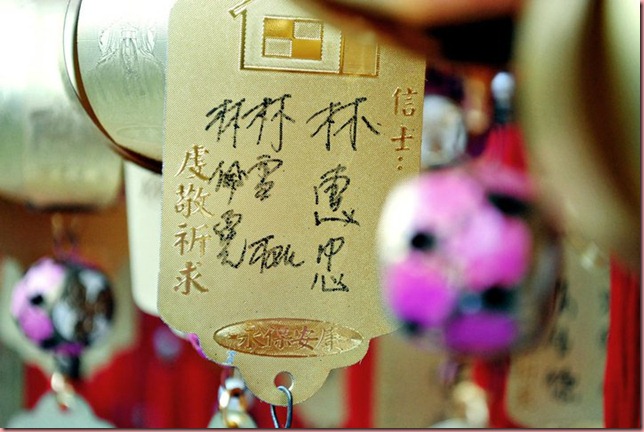 信士：
林惠忠
林雪
林佩
虔敬祈求
永保安康